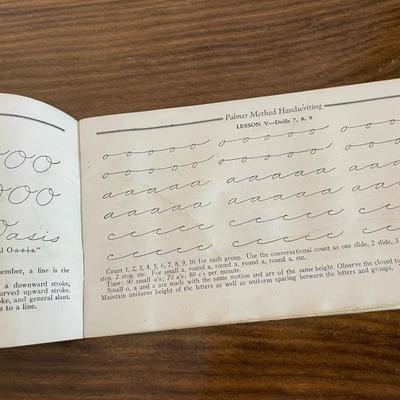 O O O
O O O
Oasis
l O-a-s-i-s."
ember, a line is the
a downward stroke,
urved upward stroke.
oke, and general slant.
s to a line.
Palmer Method Handwriting
LESSON V—Drills 7, 8, 9
o o o o o o o o o o o o o
o o o o o o o o o o o o o
a a a a a a a a a a a a a
a a a a a a a a a a a a a
c c c c c c c c c c c c c
c c c c c c c c c c c c c
Count 1, 2, 3, 4, 5, 6, 7, 8, 9, 10 for each group. Use the conversational count as one slide, 2 slide, 3
stop, 2 stop, etc. For small a, round a, round a, round a, round a, etc.
Time: 90 small o's; 70 a's; 80 c's per minute.
Small o, a and c are made with the same motion and are of the same height. Observe the closed to
Maintain uniform height of the letters as well as uniform spacing between the letters and groups.